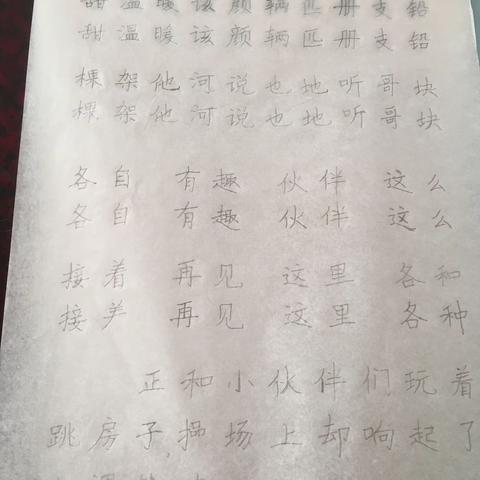 甜温暖该颜辆匹册支铅
甜温暖该颜辆匹册支铅
棵架他河说也地听哥块
棵架他河说也地听哥块
各自 有趣 伙伴 这么
各自 有趣 伙伴 这么
接着 再见 这里 各种
接着 再见 这里 各种
正和小伙伴们玩着
跳房子,操场上却响起了